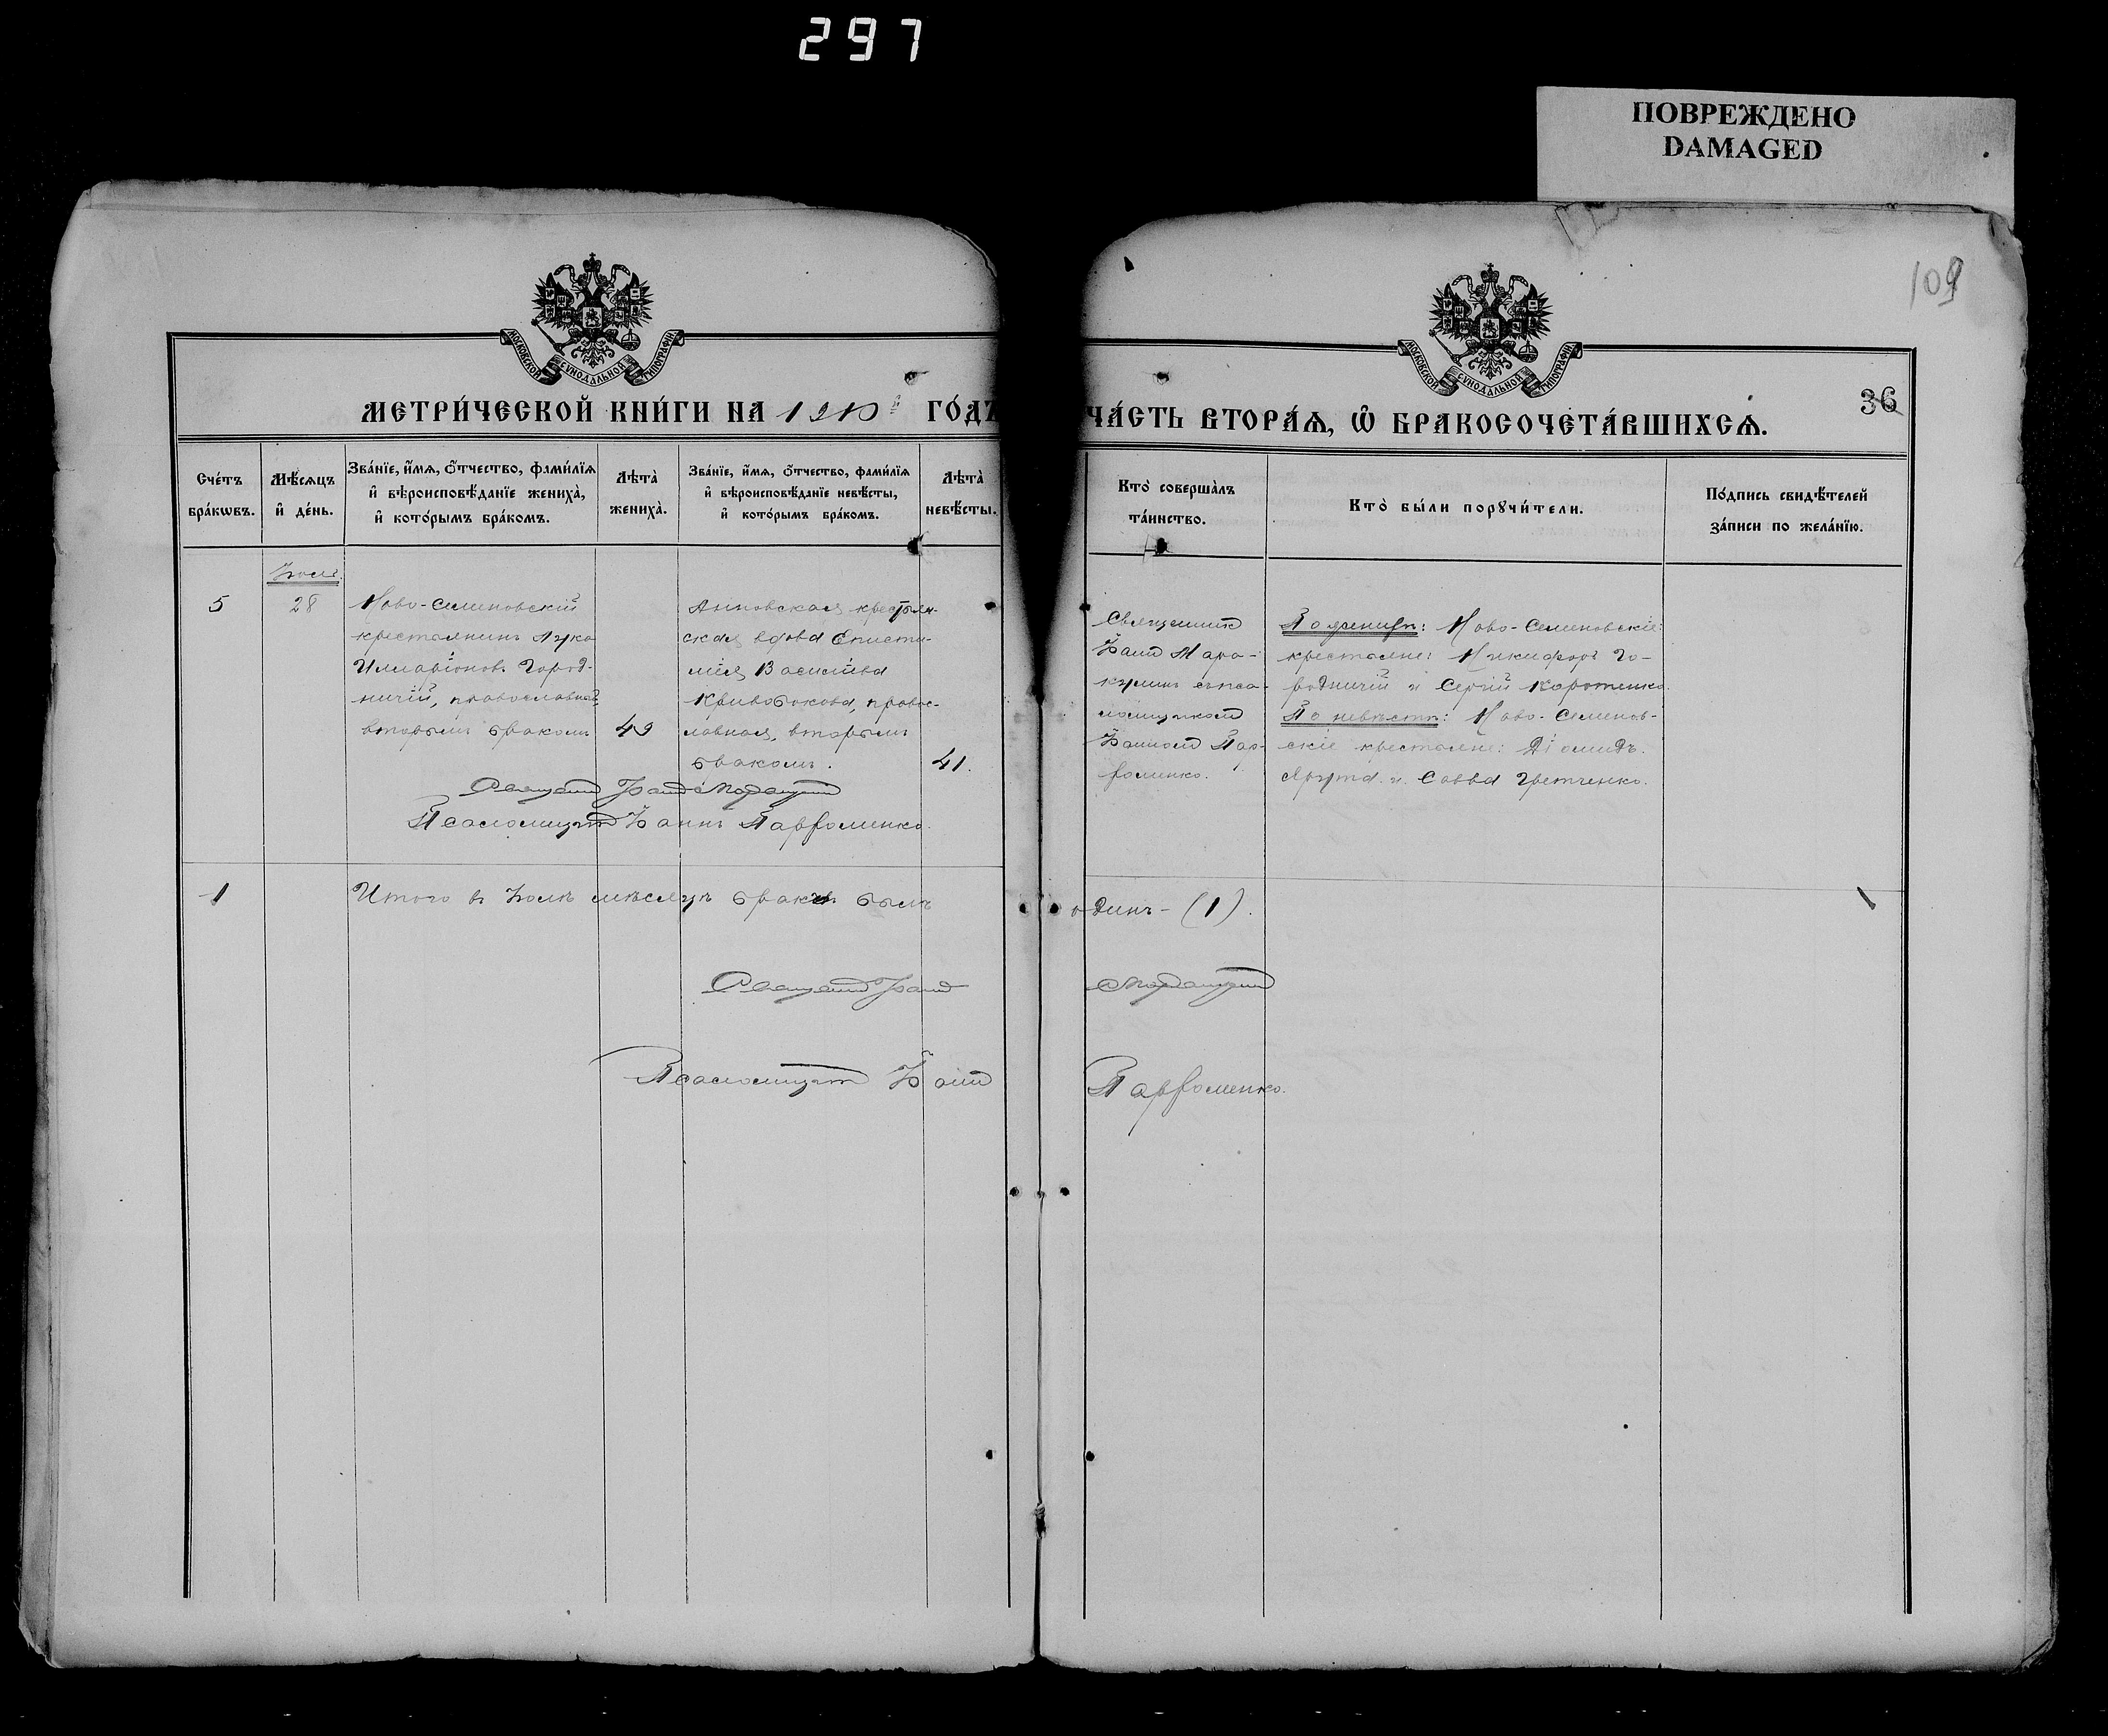 297
ПОВРЕЖДЕНО
DAMAGED
109
МОСКОВСКОЙ СУНОДАЛЬНОЙ ТИПОГРАФІИ
МОСКОВСКОЙ СУНОДАЛЬНОЙ ТИПОГРАФІИ
36
МЕТРИ́ЧЕСКОЙ КНИ́ГИ НА 1910й ГО́ДЪ
ЧА́СТЬ ВТОРА́Ѧ, Ѽ БРАКОСОЧЕТА́ВШИХСѦ.
Сче́тъ
бра́кѡвъ.
Мѣ́сѧцъ
и҆ де́нь.
Зва́нїе, и҆́мѧ, ѻ҆́тчество, фами́лїѧ
и҆ вѣроисповѣ́данїе жениха̀,
и҆ кото́рымъ бра́комъ.
Лѣта̀
жениха̀.
Зва́нїе, и҆́мѧ, ѻ҆́тчество, фами́лїѧ
и҆ вѣроисповѣ́данїе невѣ́сты,
и҆ кото́рымъ бра́комъ.
Лѣта̀
невѣ́сты.
Кто̀ соверша̀лъ
та́инство.
Кто̀ бы́ли порꙋчи́тели.
По́дпись свидѣ́телей
за́писи по жела́нїю.
Іюль.
5
28
Ново-Семеновскій
крестьянинъ Лука
Илларіоновъ Город-
ничій, православный,
вторымъ бракомъ
49
Анновская крестьян-
ская вдова Еписти-
мія Васильева
Кривобокова, правос-
лавная, вторымъ
бракомъ.
41.
Священникъ
Іоаннъ Мара-
кулинъ съ пса-
ломщикомъ
Іоанномъ Пар-
фоменко.
По женихѣ: Ново-Семеновскіе
крестьяне: Никифоръ Го-
родничій и Сергій Коротенко.
По невѣстѣ: Ново-Семенов-
скіе крестьяне: Діомидъ
и Савва Гретченко.
Священникъ Іоаннъ
Псаломщикъ Іоаннъ Парфоменко.
1
Итого въ Іюлѣ мѣсяцѣ бракъ былъ одинъ - (1).
Священникъ Іоаннъ
Псаломщикъ Іоаннъ Парфоменко.